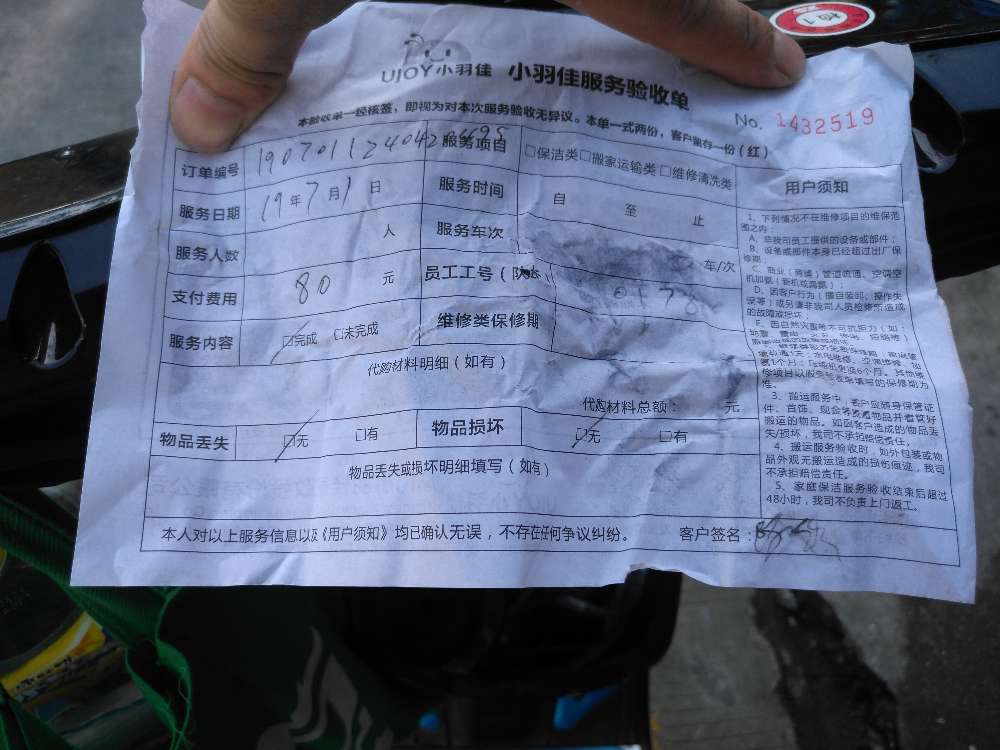 检1
UJOY小羽佳 小羽佳服务验收单
本验收单一经核签，即视为对本次服务验收无异议。本单一式两份，客户留存一份（红）
No. 1432519
订单编号 190701124042 服务项目 □保洁类□搬家运输类□维修清洗类
服务日期 19年7月1日 服务时间 自 至 止
服务人数 人 服务车次 车/次
支付费用 80 元 员工工号（队长） 0178
服务内容 □完成 □未完成 维修类保修期
代购材料明细（如有）
代购材料总额： 元
物品丢失 □无 □有 物品损坏 □无 □有
物品丢失或损坏明细填写（如有）
本人对以上服务信息以及《用户须知》均已确认无误，不存在任何争议纠纷。 客户签名：
用户须知
1、下列情况不在维修项目的维保范
围之内：
A、非我司员工提供的设备或部件；
B、设备或部件本身已经超过出厂保
修期；
C、商业（商铺）管道疏通、空调空
机加氨（新机或高氨）；
D、因客户行为（擅自装卸、操作失
误等）或另请非我司人员检修所造成
的故障或损坏；
E、因自然灾害等不可抗拒力（如：
修项目以服务验收单填写的保修期为
准。
3、搬运服务中，客户应随身保管证
件、首饰、现金等贵重物品并看管好
搬运的物品。如因客户造成的物品丢
失/损坏，我司不承担赔偿责任。
4、搬运服务验收时，如外包装或物
品外观无搬运造成的损伤痕迹，我司
不承担赔偿责任。
5、家庭保洁服务验收结束后超过
48小时，我司不负责上门返工。